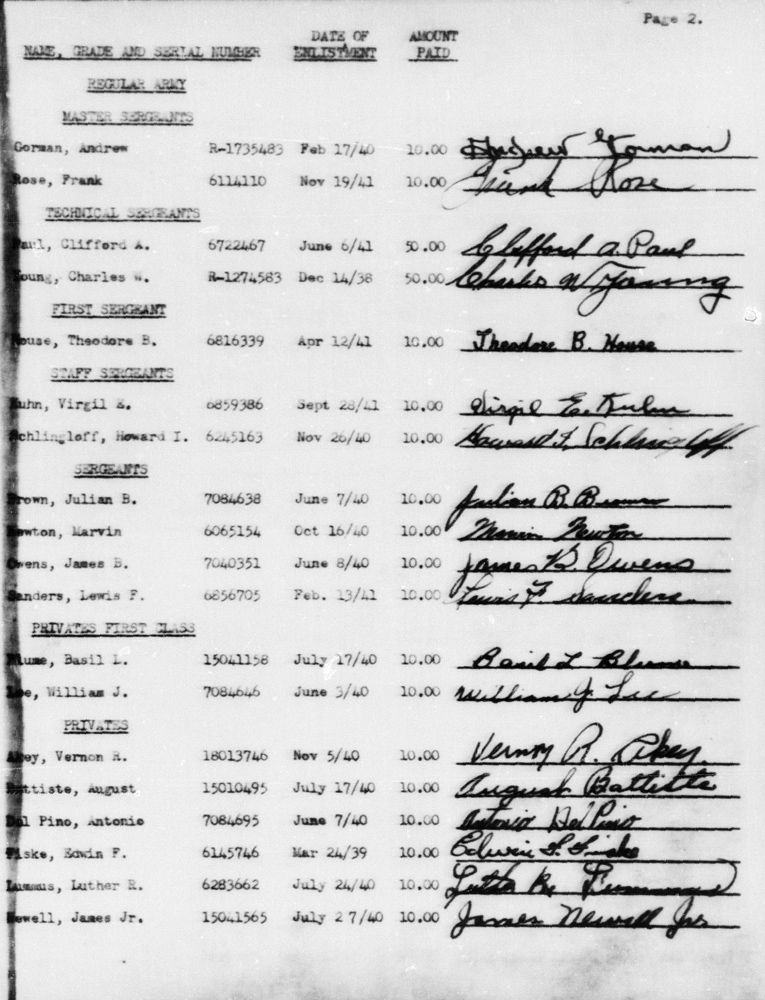 Page 2.
DATE OF AMOUNT
NAME, GRADE AND SERIAL NUMBER ENLISTMENT PAID
REGULAR ARMY
MASTER SERGEANTS
Gorman, Andrew R-1735483 Feb 17/40 10.00 Andrew Gorman
Rose, Frank 6114110 Nov 19/41 10.00 Frank Rose
TECHNICAL SERGEANTS
Paul, Clifford A. 6722467 June 6/41 50.00 Clifford A. Paul
Young, Charles W. R-1274583 Dec 14/38 50.00 Charles W Young
FIRST SERGEANT
House, Theodore B. 6816339 Apr 12/41 10.00 Theodore B. House
STAFF SERGEANTS
Kuhn, Virgil E. 6859386 Sept 28/41 10.00 Virgil E. Kuhn
Schlingloff, Howard I. 6245163 Nov 26/40 10.00 Howard I. Schlingloff
SERGEANTS
Brown, Julian B. 7084638 June 7/40 10.00 Julian B. Brown
Newton, Marvin 6065154 Oct 16/40 10.00 Marvin Newton
Owens, James B. 7040351 June 8/40 10.00 James B. Owens
Sanders, Lewis F. 6856705 Feb. 13/41 10.00 Lewis F. Sanders
PRIVATES FIRST CLASS
Blume, Basil L. 15041158 July 17/40 10.00 Basil L Blume
Lee, William J. 7084646 June 3/40 10.00 William J. Lee
PRIVATES
Akey, Vernon R. 18013746 Nov 5/40 10.00 Vernon R. Akey.
Battiste, August 15010495 July 17/40 10.00 August Battiste
Del Pino, Antonio 7084695 June 7/40 10.00 Antonio Del Pino
Fiske, Edwin F. 6145746 Mar 24/39 10.00 Edwin F. Fiske
Lummus, Luther R. 6283662 July 24/40 10.00 Luther R. Lummus
Newell, James Jr. 15041565 July 2 7/40 10.00 James Newell Jr.